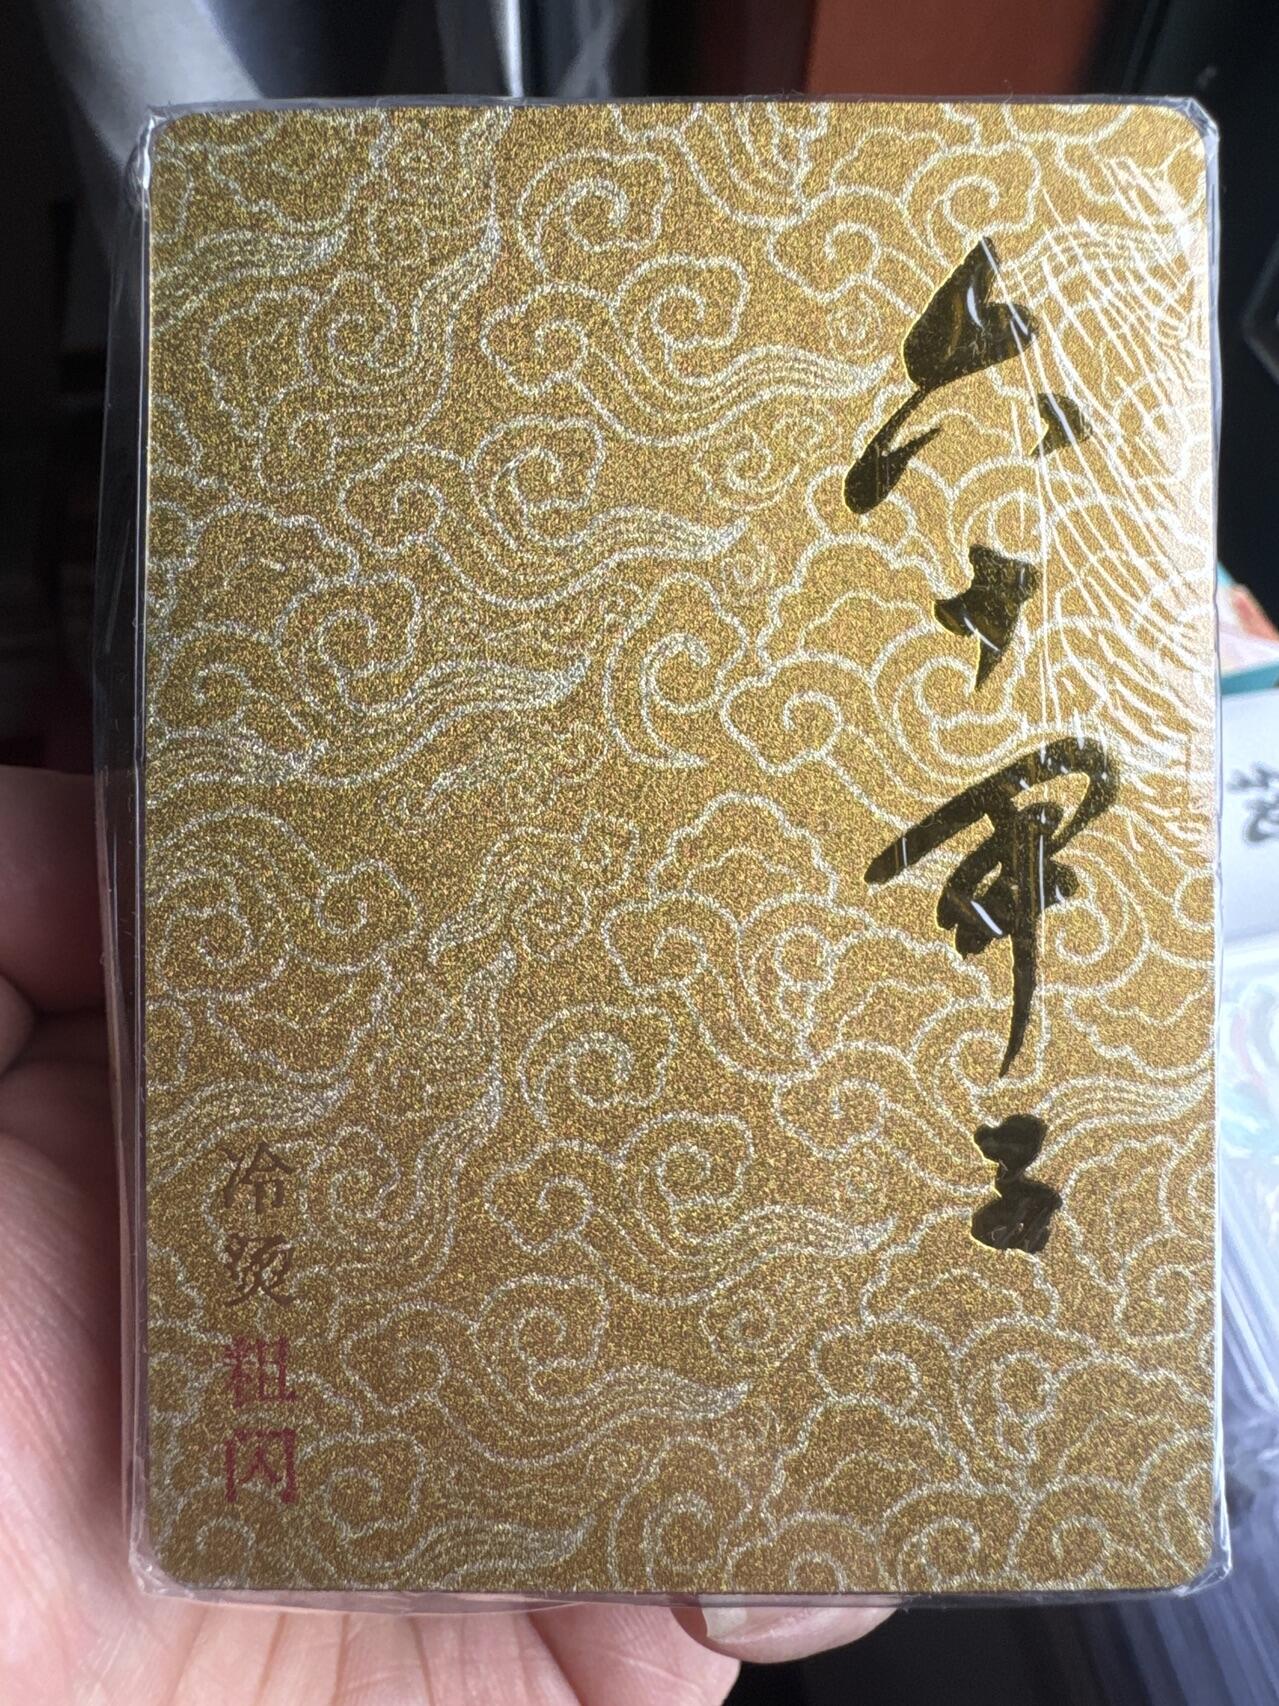 六十甲子
冷烫粗闪